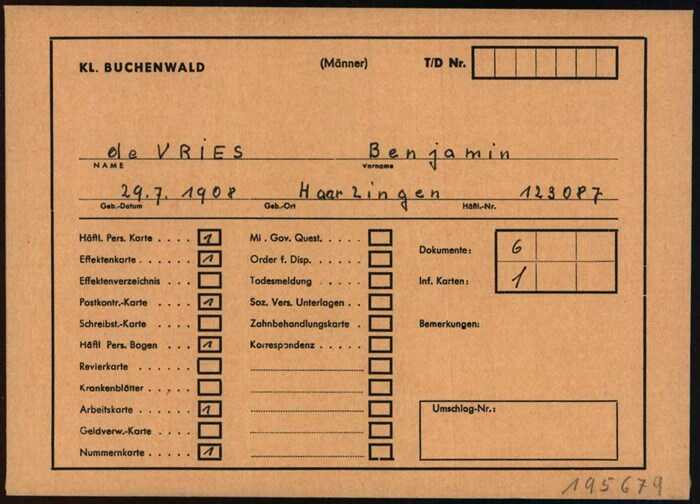 KL. BUCHENWALD (Männer) T/D Nr.
de VRIES Benjamin
NAME Vorname
29.7. 1908 Haarlingen 123087
Geb.-Datum Geb.-Ort Häftl.-Nr.
Häftl. Pers. Karte . . . . 1 Mi . Gov. Quest. . . . . Dokumente: 6
Effektenkarte . . . . . 1 Order f. Disp. . . . . .
Effektenverzeichnis . . Todesmeldung . . . . . Inf. Karten: 1
Postkontr.-Karte . . . . 1 Soz. Vers. Unterlagen . .
Schreibst.-Karte . . . . Zahnbehandlungskarte . Bemerkungen:
Häftl Pers. Bogen . . . 1 Korrespondenz . . .
Revierkarte . . . . . .
Krankenblätter . . . . .
Arbeitskarte . . . . . 1 Umschlag-Nr.:
Geldverw.-Karte . . . .
Nummernkarte . . . . . 1
195679